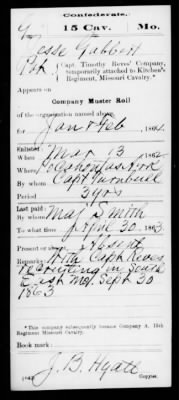 Confederate.
G 15 Cav. Mo.
Jesse Gabbert
Pvt, Capt. Timothy Reves' Company, temporarily attached to Kitchen's Regiment, Missouri Cavalry.*
Appears on
Company Muster Roll
of the organization named above,
for Jan & Feb, 1864.
Enlisted:
When Mar 13, 1862
Where Pocahontas Ark
By whom Capt Turnbull
Period 3 yrs
Last paid:
By whom Maj Smith
To what time April 30, 1863.
Present or absent Absent
Remarks: With Capt Reves
recruiting in South
East Mo. Sept 30
1863
*This company subsequently became Company A, 15th
Regiment Missouri Cavalry.
Book mark:
J. B. Hyatt
(642) Copyist.